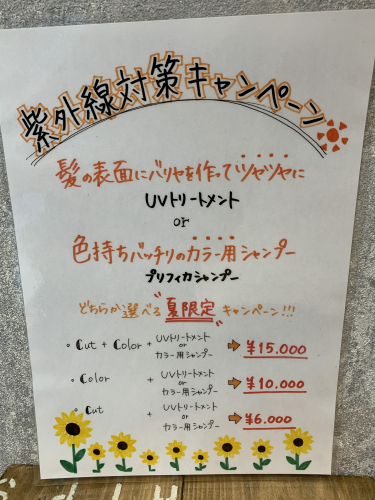 紫外線対策キャンペーン
髪の表面にバリヤを作ってツヤツヤに
UVトリートメント
or
色持ちバッチリのカラー用シャンプー
プリフィカシャンプー
どちらか選べる"夏限定"キャンペーン!!!
・Cut + Color + UVトリートメント or カラー用シャンプー ➡ ¥15.000
・Color + UVトリートメント or カラー用シャンプー ➡ ¥10.000
・Cut + UVトリートメント or カラー用シャンプー ➡ ¥6.000